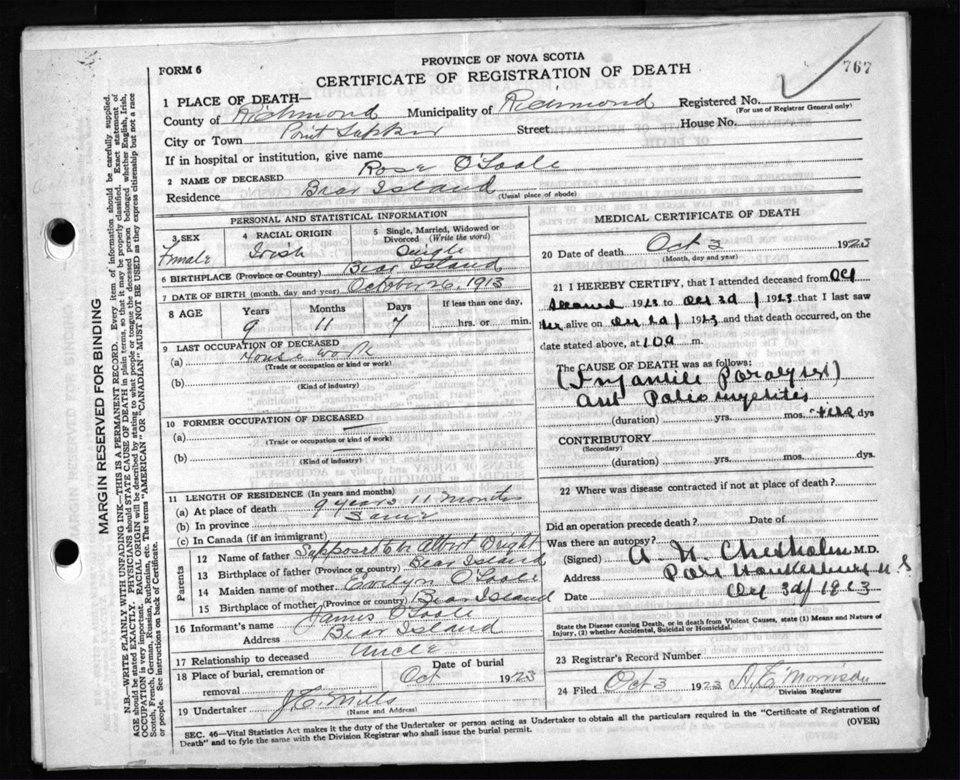 PROVINCE OF NOVA SCOTIA
FORM 6
CERTIFICATE OF REGISTRATION OF DEATH
767
1 PLACE OF DEATH—
County of Richmond Municipality of Richmond Registered No.
(For use of Registrar General only)
City or Town Street House No.
If in hospital or institution, give name
2 NAME OF DECEASED Rose O'Toole
Residence Bear Island
(Usual place of abode)
PERSONAL AND STATISTICAL INFORMATION
3 SEX Female
4 RACIAL ORIGIN Irish
5 Single, Married, Widowed or Divorced (Write the word) Single
6 BIRTHPLACE (Province or Country) Bear Island
7 DATE OF BIRTH (month, day and year) October 26, 1913
8 AGE Years Months Days If less than one day,
9 11 7 hrs. or min.
9 LAST OCCUPATION OF DECEASED
(a) House work
(Trade or occupation or kind of work)
(b)
(Kind of industry)
10 FORMER OCCUPATION OF DECEASED
(a)
(Trade or occupation or kind of work)
(b)
(Kind of industry)
11 LENGTH OF RESIDENCE (In years and months)
(a) At place of death 9 years 11 months
(b) In province Same
(c) In Canada (if an immigrant)
Parents
12 Name of father Supposed to be Albert
13 Birthplace of father (Province or country) Bear Island
14 Maiden name of mother Evelyn O'Toole
15 Birthplace of mother (Province or country) Bear Island
16 Informant's name James O'Toole
Address Bear Island
17 Relationship to deceased Uncle
18 Place of burial, cremation or removal Date of burial Oct 1923
19 Undertaker J. C. Mills
(Name and Address)
MEDICAL CERTIFICATE OF DEATH
20 Date of death Oct 3 1923
(Month, day and year)
21 I HEREBY CERTIFY, that I attended deceased from Oct
second 1923 to Oct 3d 1923 that I last saw
her alive on Oct 2d 1923 and that death occurred, on
date stated above, at 10 a m.
The CAUSE OF DEATH was as follows:
(Infantile Paralysis)
Poliomyelitis
(duration) yrs. mos. dys
CONTRIBUTORY
(Secondary)
(duration) yrs. mos. dys.
22 Where was disease contracted if not at place of death?
Did an operation precede death? Date of
Was there an autopsy?
(Signed) A. N. Chisholm M.D.
Address Port Hawkesbury N. S
Date Oct 3d 1923
State the Disease causing Death, or in death from Violent Causes, state (1) Means and Nature of
Injury, (2) whether Accidental, Suicidal or Homicidal.
23 Registrar's Record Number
24 Filed Oct 3 1923 Morrison
Division Registrar
SEC. 46—Vital Statistics Act makes it the duty of the Undertaker or person acting as Undertaker to obtain all the particulars required in the "Certificate of Registration of
Death" and to fyle the same with the Division Registrar who shall issue the burial permit. (OVER)
MARGIN RESERVED FOR BINDING
N.B.—WRITE PLAINLY, WITH UNFADING INK—THIS IS A PERMANENT RECORD. Every item of information should be carefully supplied.
AGE should be stated EXACTLY. PHYSICIANS should STATE CAUSE OF DEATH in plain terms, so that it may be properly classified. Exact statement of
OCCUPATION is very important. RACIAL ORIGIN will be described by stating to what people or tongue the deceased person belonged whether English, Irish,
Scotch, French, German, Russian, Ruthenian, etc. The terms "AMERICAN" OR "CANADIAN" MUST NOT BE USED as they express citizenship but not a race
or people. See instructions on back of Certificate.